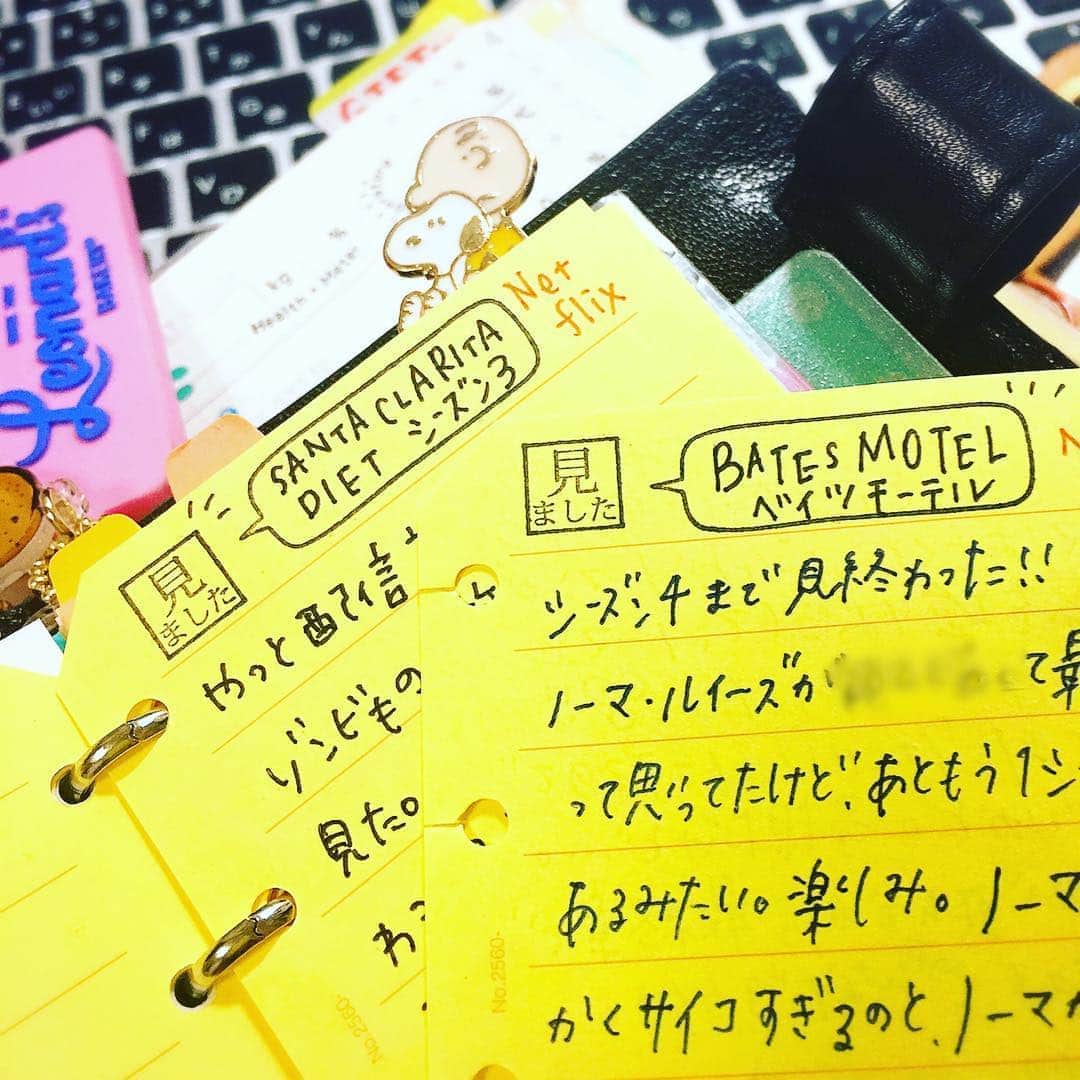 Leonard's
BAKERY
kg
%
Health・Meter
Net
flix
SANTA CLARITA
DIET シーズン3
見
ました
やっと配信
ゾンビもの
見た。
No.2560-
BATES MOTEL
ベイツモーテル
見
ました
シーズン4まで見終わった!!
ノーマ・ルイーズが て最
って思ってたけど、あともう1シ
あるみたい。楽しみ。ノーマ
かくサイコすぎるのと、ノーマが
No.2560-